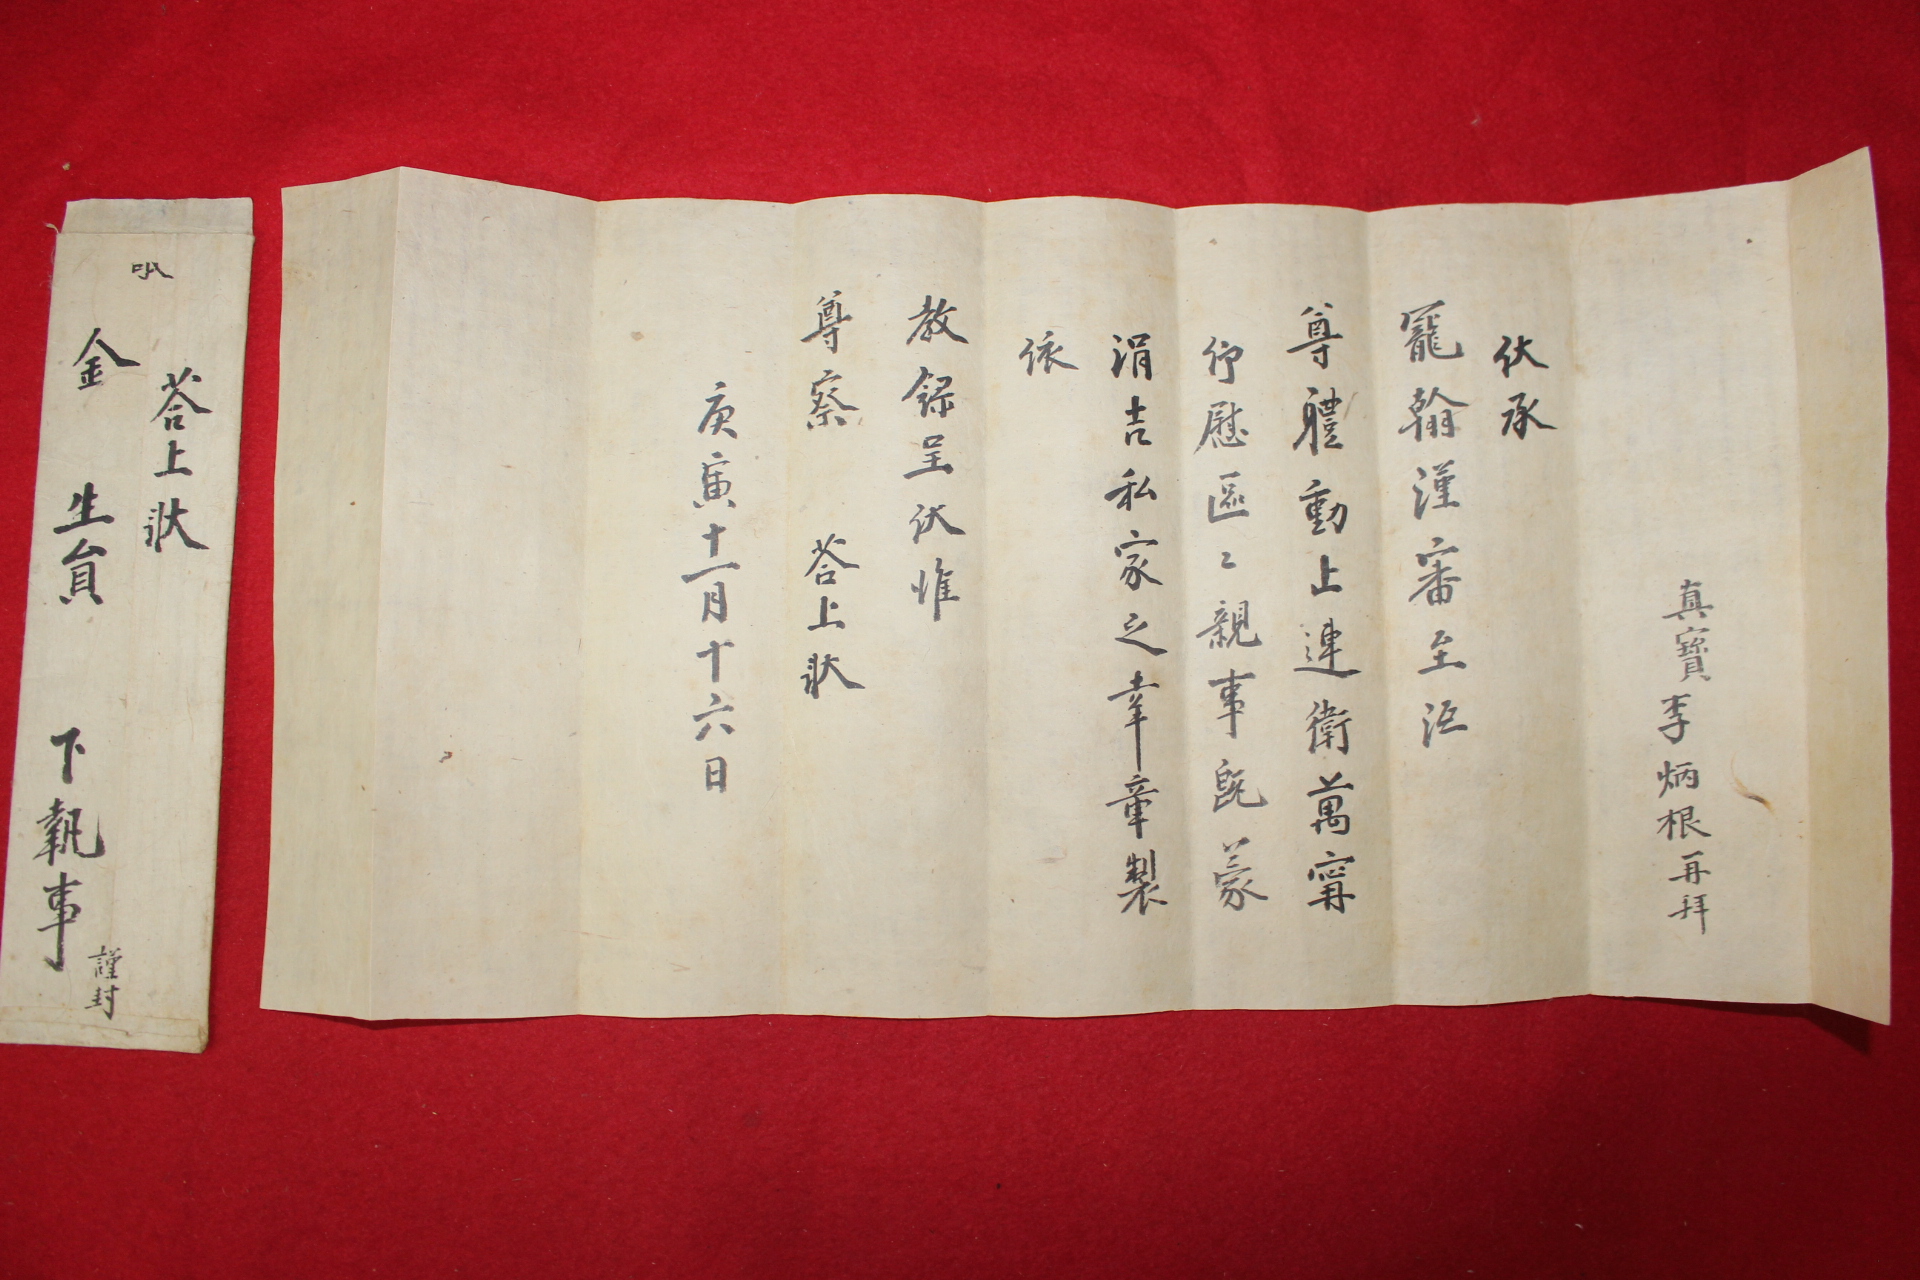 真寶李炳根再拜
伏承
寵翰謹審至沍
尊體動止連衛萬甯
仰慰區〻親事旣蒙
涓吉私家之幸章製
依
教錄呈伏惟
尊察 荅上狀
庚寅十一月十六日
荅上狀
金 生員 下執事
謹封